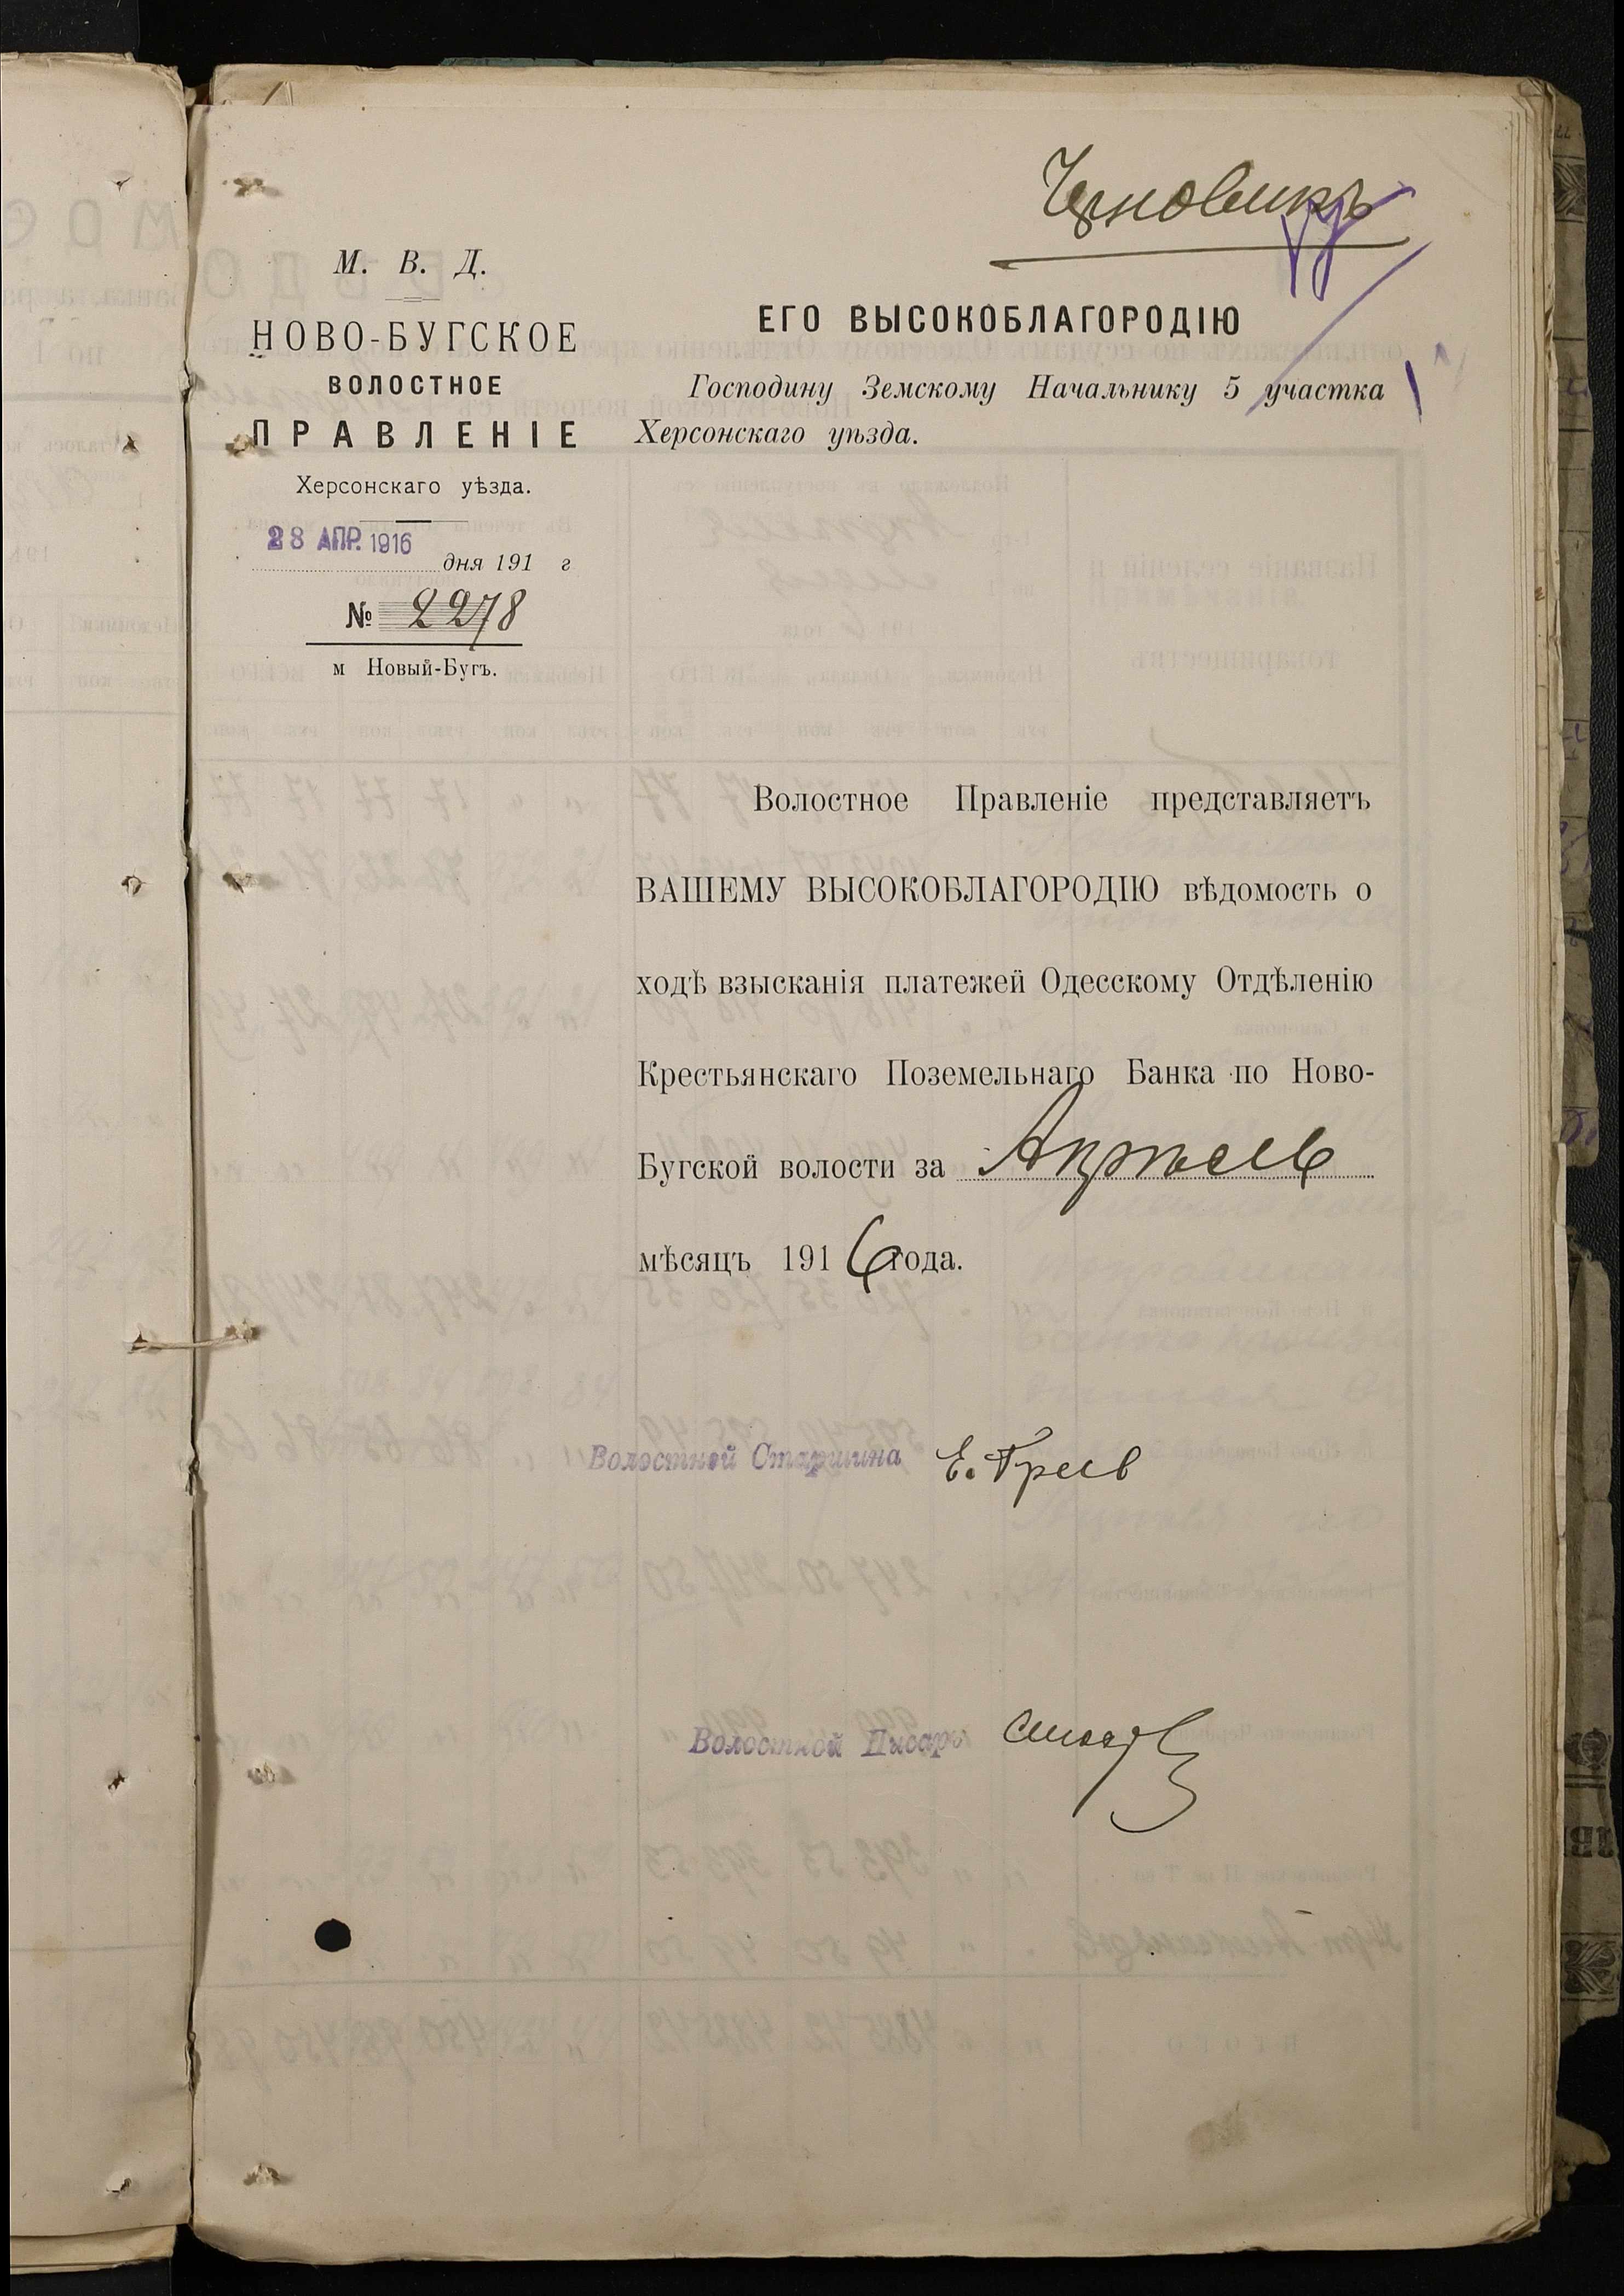 Черновикъ
М. В. Д.
НОВО-БУГСКОЕ
ВОЛОСТНОЕ
ПРАВЛЕНІЕ
Херсонскаго уѣзда.
28 АПР. 1916
дня 191 г
№ 2278
м Новый-Бугъ.
ЕГО ВЫСОКОБЛАГОРОДІЮ
Господину Земскому Начальнику 5 участка
Херсонскаго уѣзда.
Волостное Правленіе представляетъ
ВАШЕМУ ВЫСОКОБЛАГОРОДІЮ вѣдомость о
ходѣ взысканія платежей Одесскому Отдѣленію
Крестьянскаго Поземельнаго Банка по Ново-
Бугской волости за Апрѣль
мѣсяцъ 1916 года.
Волостной Старшина
Волостной Писарь